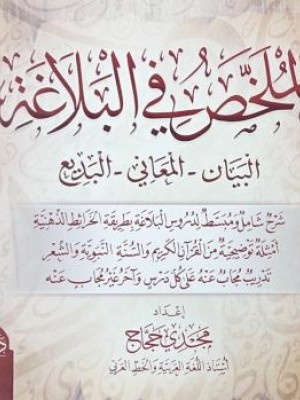 الملخص في البلاغة
البيان - المعاني - البديع
شرح شامل ومبسط لدروس البلاغة بطريقة الخرائط الذهنية
أمثلة توضيحية من القرآن الكريم والسنة النبوية والشعر
تدريب مجاب عنه على كل درس وآخر غير مجاب عنه
إعداد
مجدي حجاج
أستاذ اللغة العربية والخط العربي